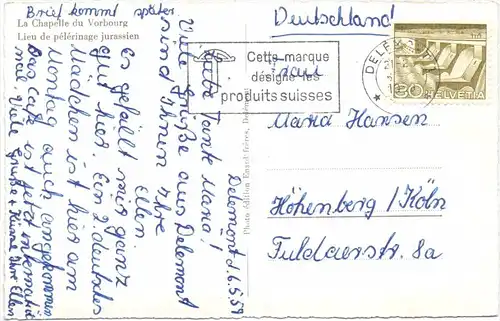 Brief kommt später.
La Chapelle du Vorbourg
Lieu de pélérinage jurassien
Delémont, d. 6.5.59
Liebe Tante Maria!
Viele Grüße aus Delemont
sind Ihnen Ihre
Ellen.
Es gefällt mir ganz
gut hier. Ein 2. deutsches
Mädchen ist hier am
Montag auch angekommen
Das Café ist jetzt internatio
nal. Viele Grüße + Ihre Ellen
Photo Edition Enard frères, Delémont
Deutschland
Cette marque
désigne les
produits suisses
DELÉMONT
HELVETIA
30
Frau
Maria Hansen
Höhenberg/Köln
Fuldaerstr. 8a